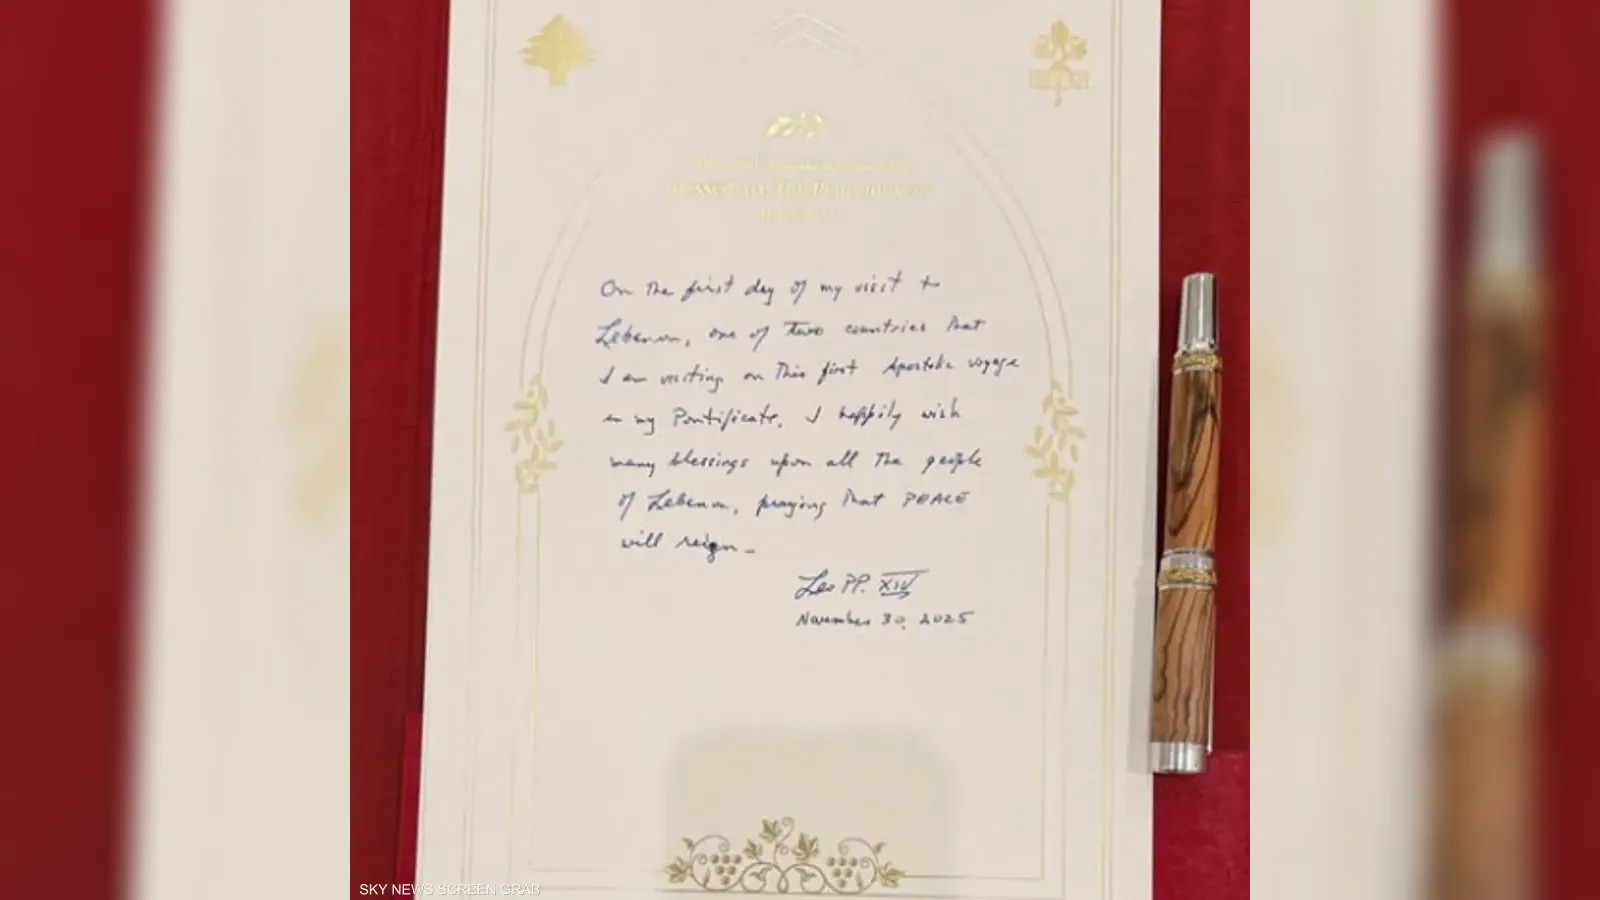 BLESSED ARE THE PEACEMAKERS
On the first day of my visit to
Lebanon, one of two countries that
I am visiting on this first Apostolic voyage
in my Pontificate, I happily wish
many blessings upon all the people
of Lebanon, praying that PEACE
will reign -
Leo PP. XIV
November 30, 2025
SKY NEWS SCREEN GRAB